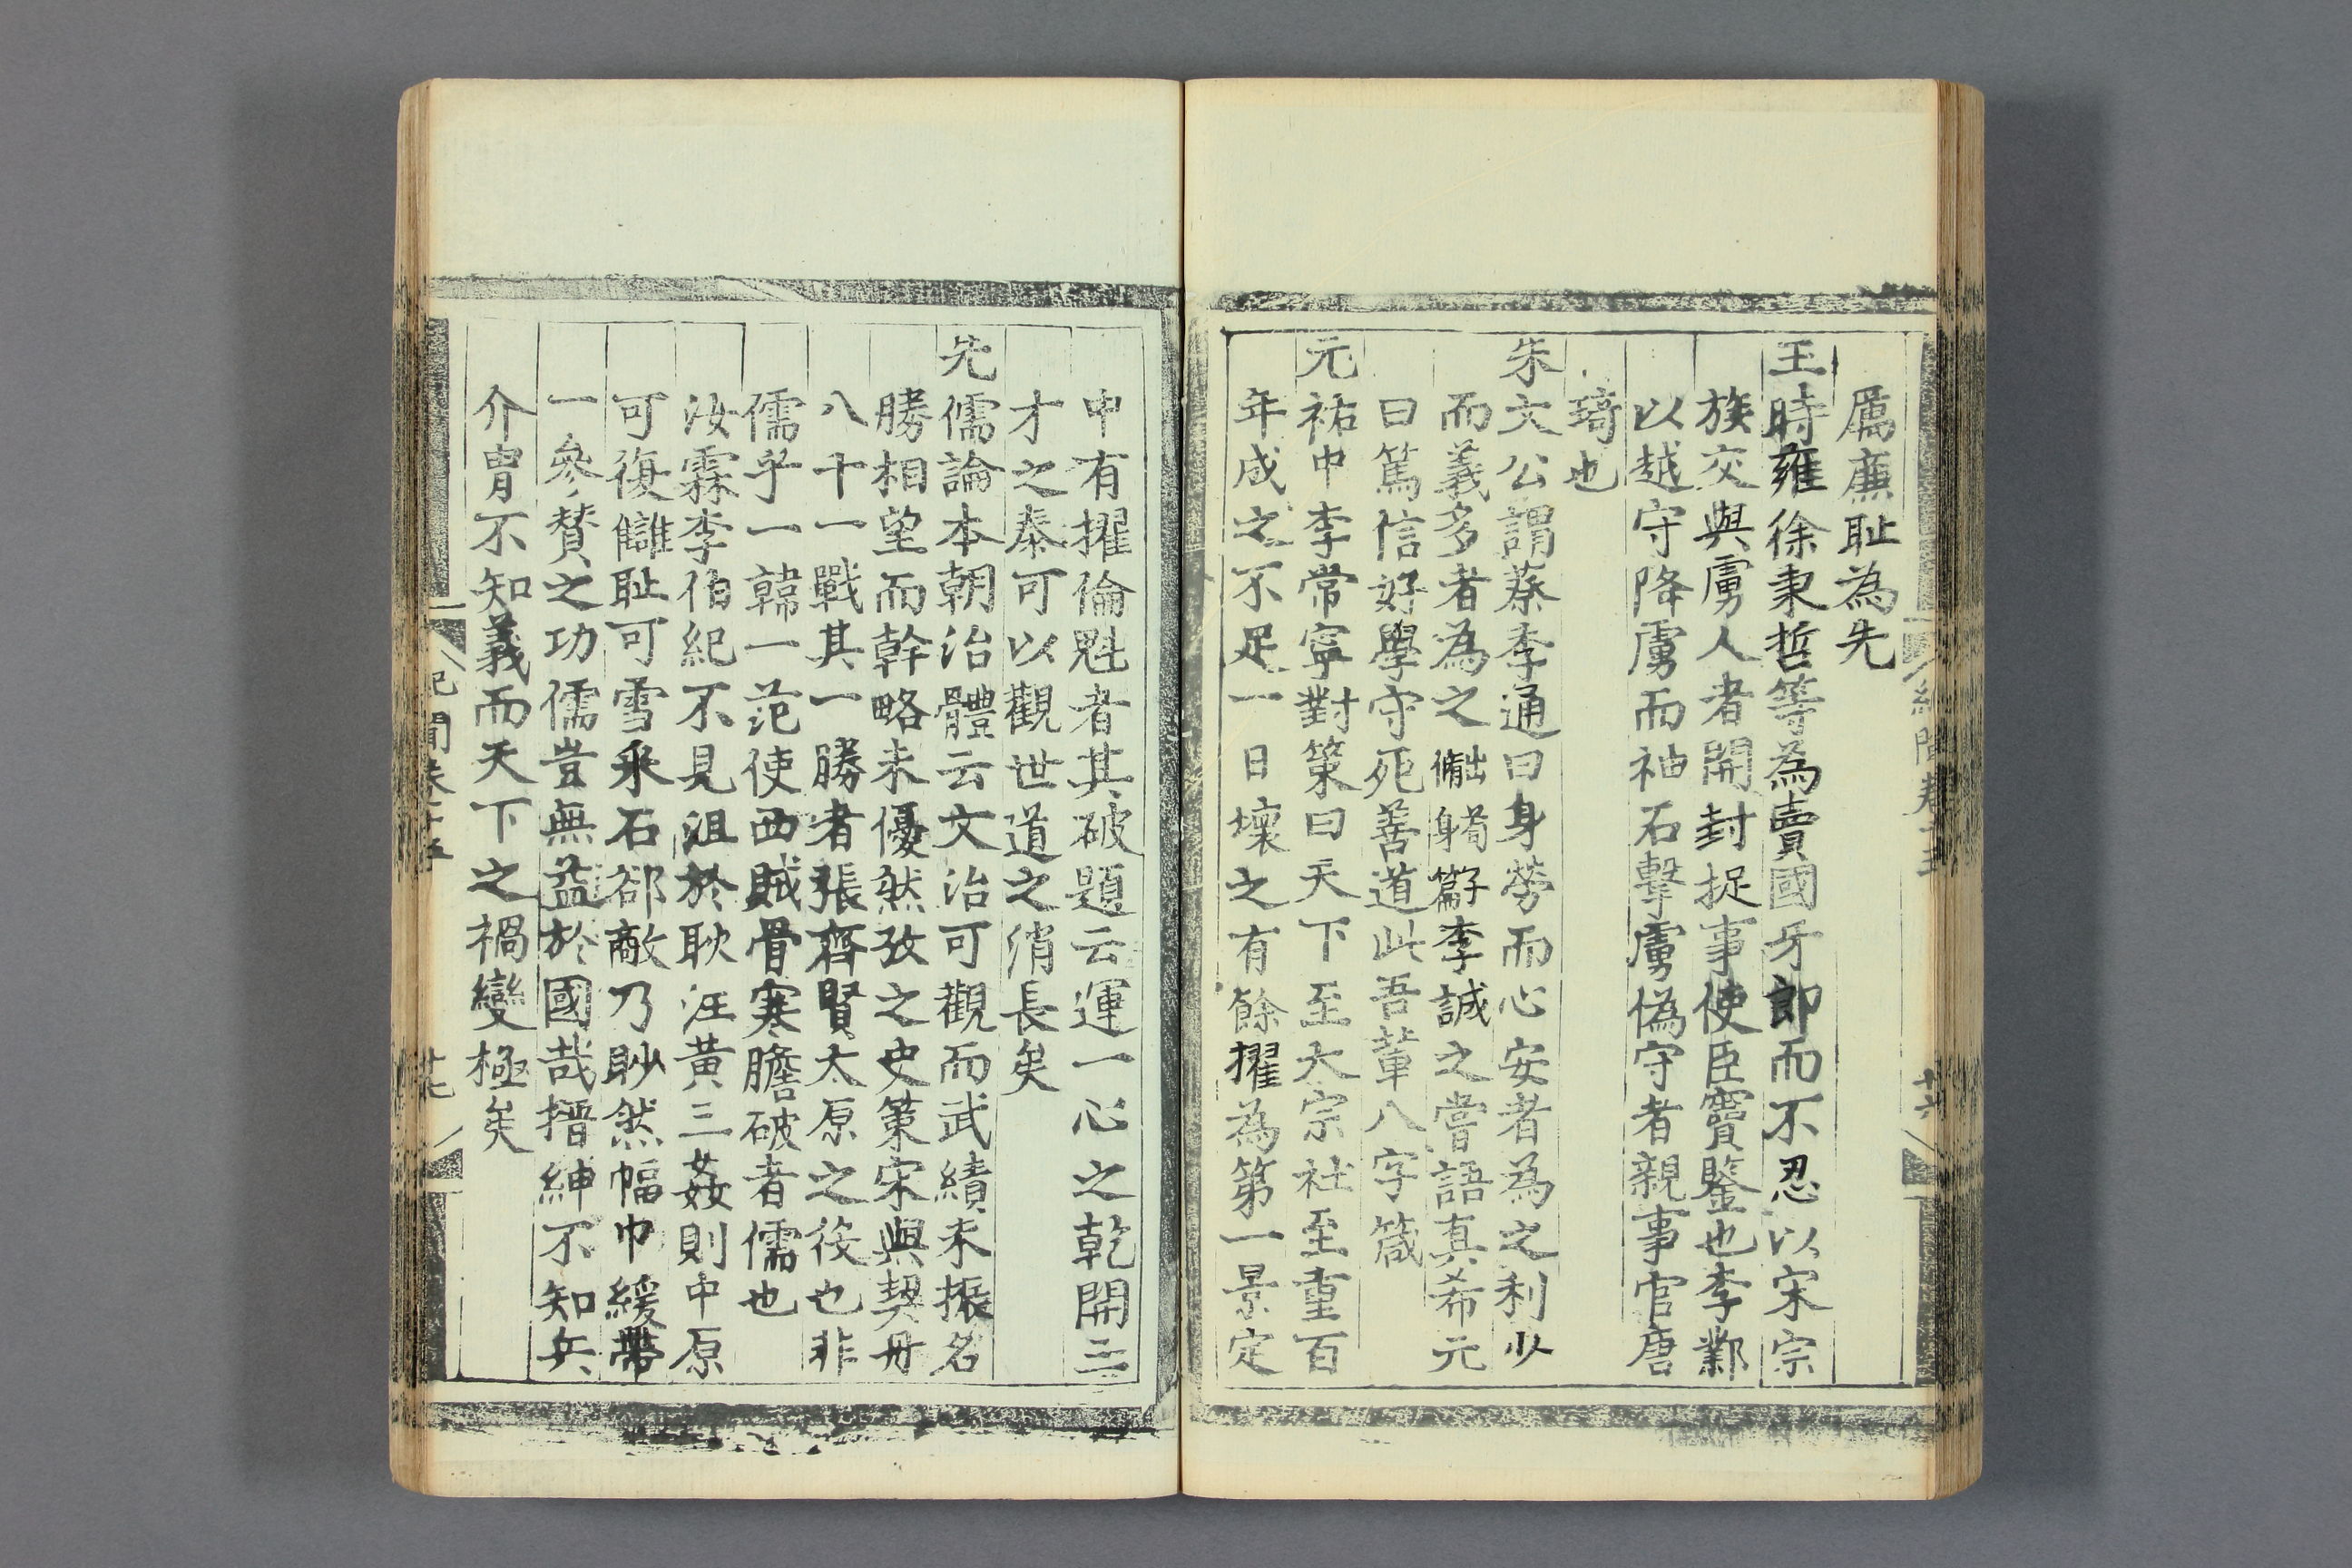 厲廉恥為先
王時雍徐秉哲等為賣國牙郎而不忍以宋宗
族交與虜人者開封捉事使臣竇鑒也李鄴
以越守降虜而袖石擊虜偽守者親事官唐
琦也
朱文公謂蔡季通曰身勞而心安者為之利少
而義多者為之出荀子脩身篇李誠之嘗語真希元
曰篤信好學守死善道此吾輩八字箴
元祐中李常寧對策曰天下至大宗社至重百
年成之不足一日壞之有餘擢為第一景定
中有擢倫魁者其破題云運一心之乾開三
才之泰可以觀世道之消長矣
先儒論本朝治體云文治可觀而武績未振名
勝相望而幹略未優然攷之史策宋與契丹
八十一戰其一勝者張齊賢太原之役也非
儒乎一韓一范使西賊骨寒膽破者儒也
汝霖李伯紀不見沮於耿汪黃三姦則中原
可復讎恥可雪乘石郤敵乃眇然幅巾緩帶
一參贊之功儒豈無益於國哉搢紳不知兵
介冑不知義而天下之禍變極矣
紀聞卷十五